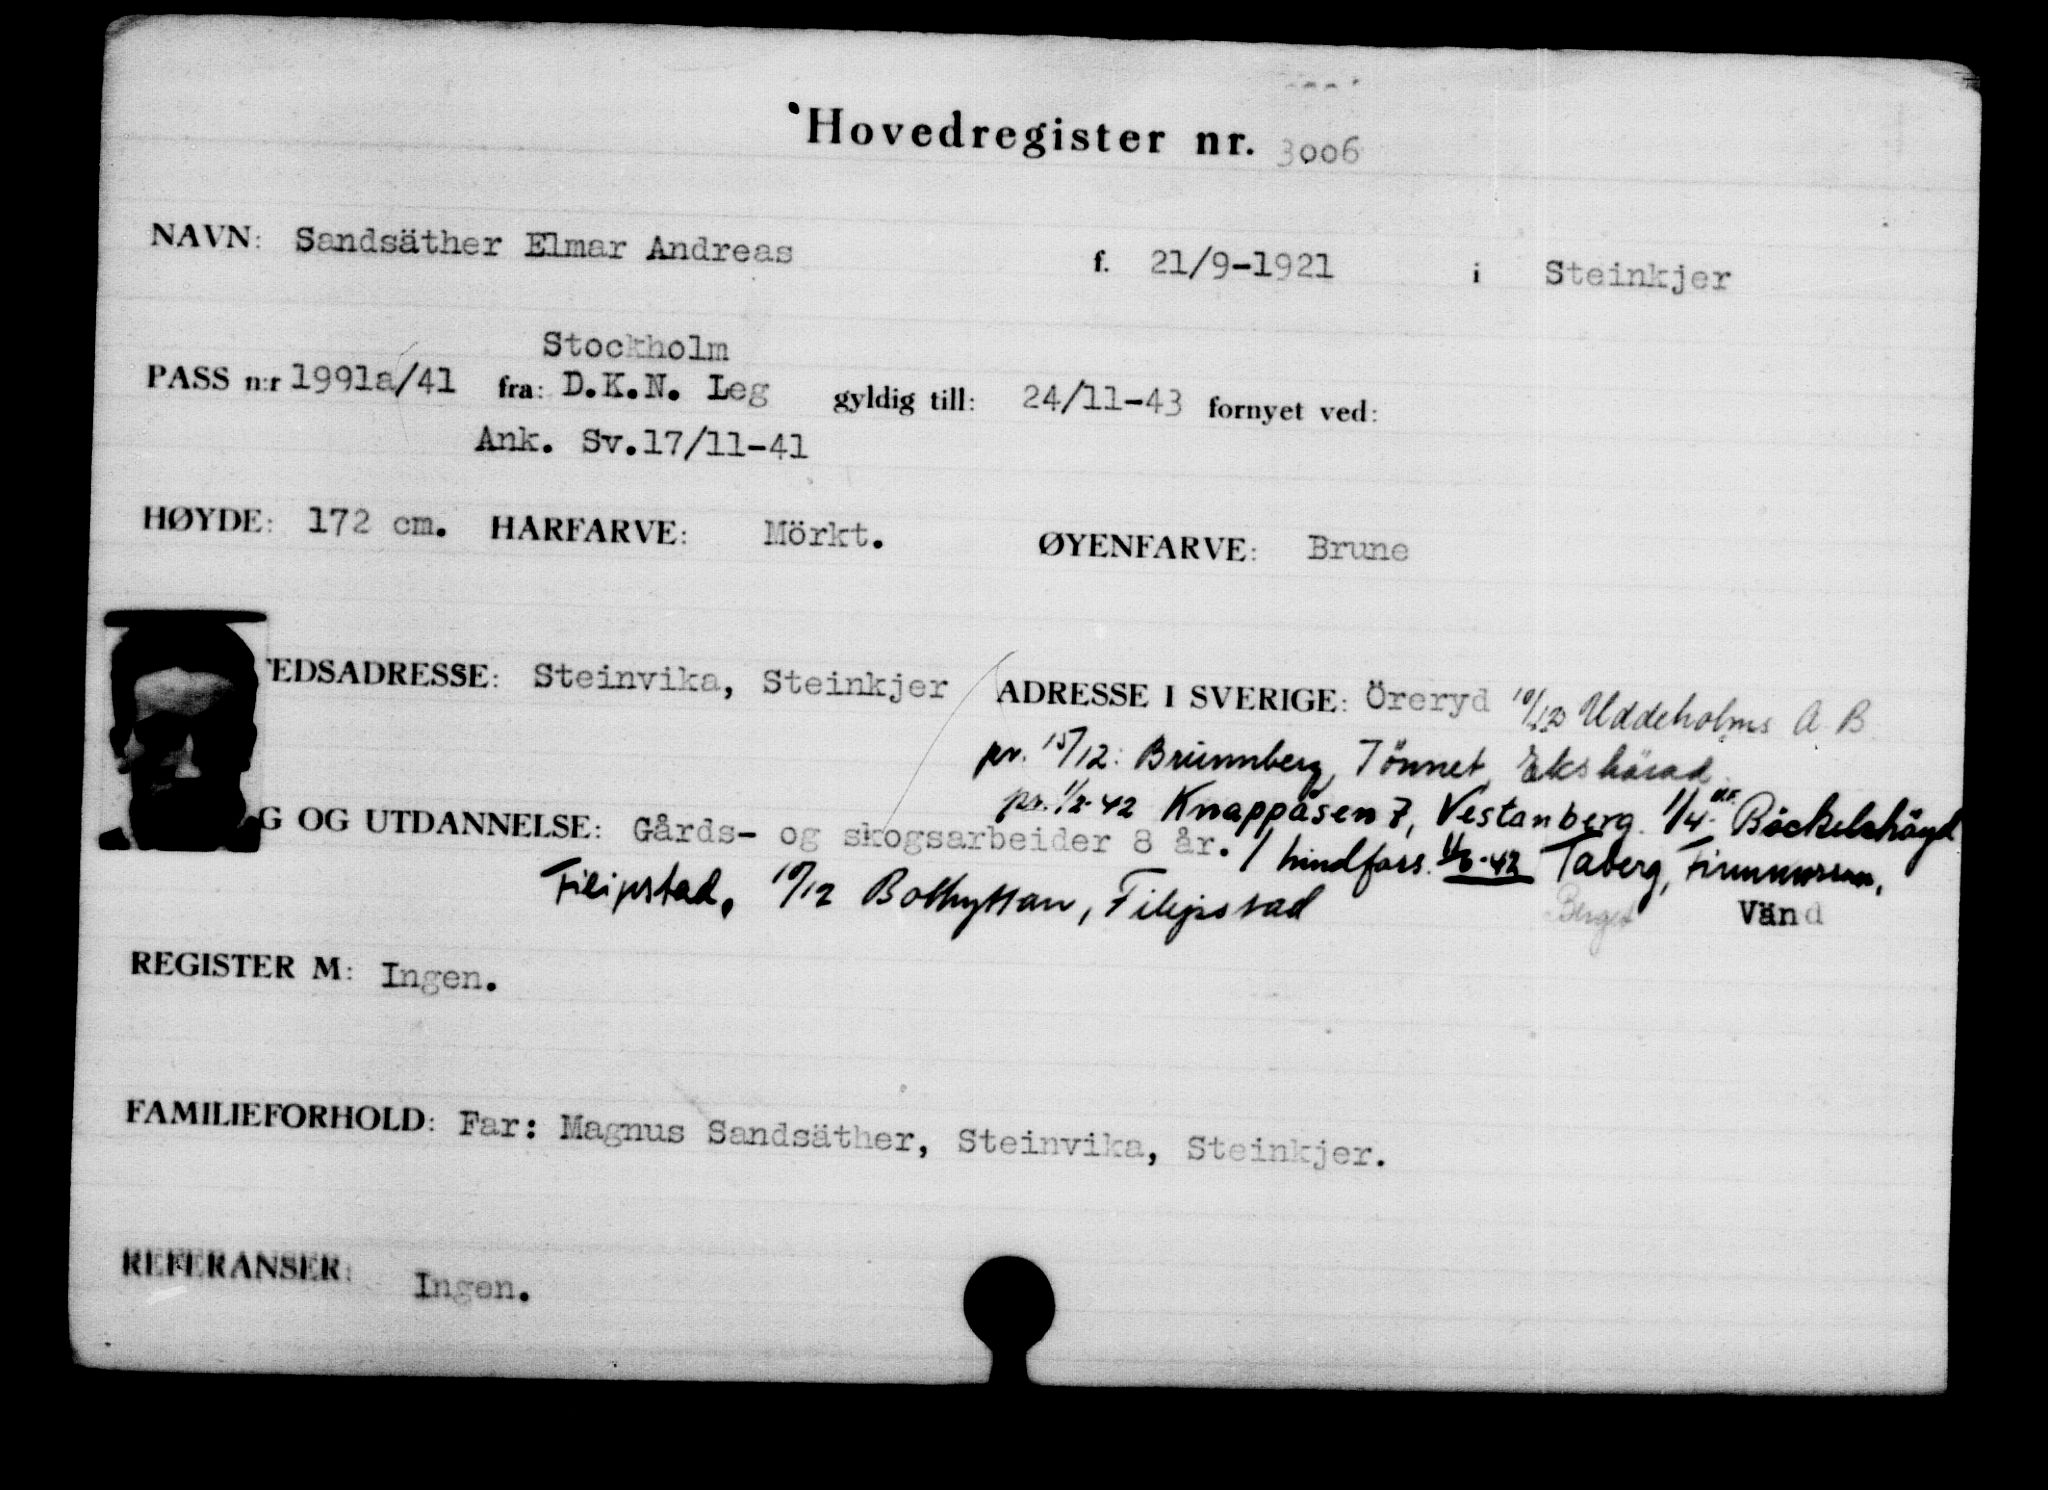 Hovedregister nr. 3006
NAVN: Sandsäther Elmar Andreas f. 21/9-1921 i Steinkjer
Stockholm
PASS n:r 1991a/41 fra: D.K.N. Leg gyldig till: 24/11-43 fornyet ved:
Ank. Sv.17/11-41
HØYDE: 172 cm. HÅRFARVE: Mörkt. ØYENFARVE: Brune
TEDSADRESSE: Steinvika, Steinkjer ADRESSE I SVERIGE: Öreryd 10/12 Uddeholms A.B.
pr. 15/12: Brunnberg, Tönnet, Ekshärad.
pr. 1/2-42 Knappåsen 7, Vestanberg. 1/4- Böckelshöyd
G OG UTDANNELSE: Gårds- og skogsarbeider 8 år. / hindfors. 1/6-42 Taberg,
Filipstad, 10/12 Bothyttan, Filipstad
Berget Vänd
REGISTER M: Ingen.
FAMILIEFORHOLD: Far: Magnus Sandsäther, Steinvika, Steinkjer.
REFERANSER: Ingen.